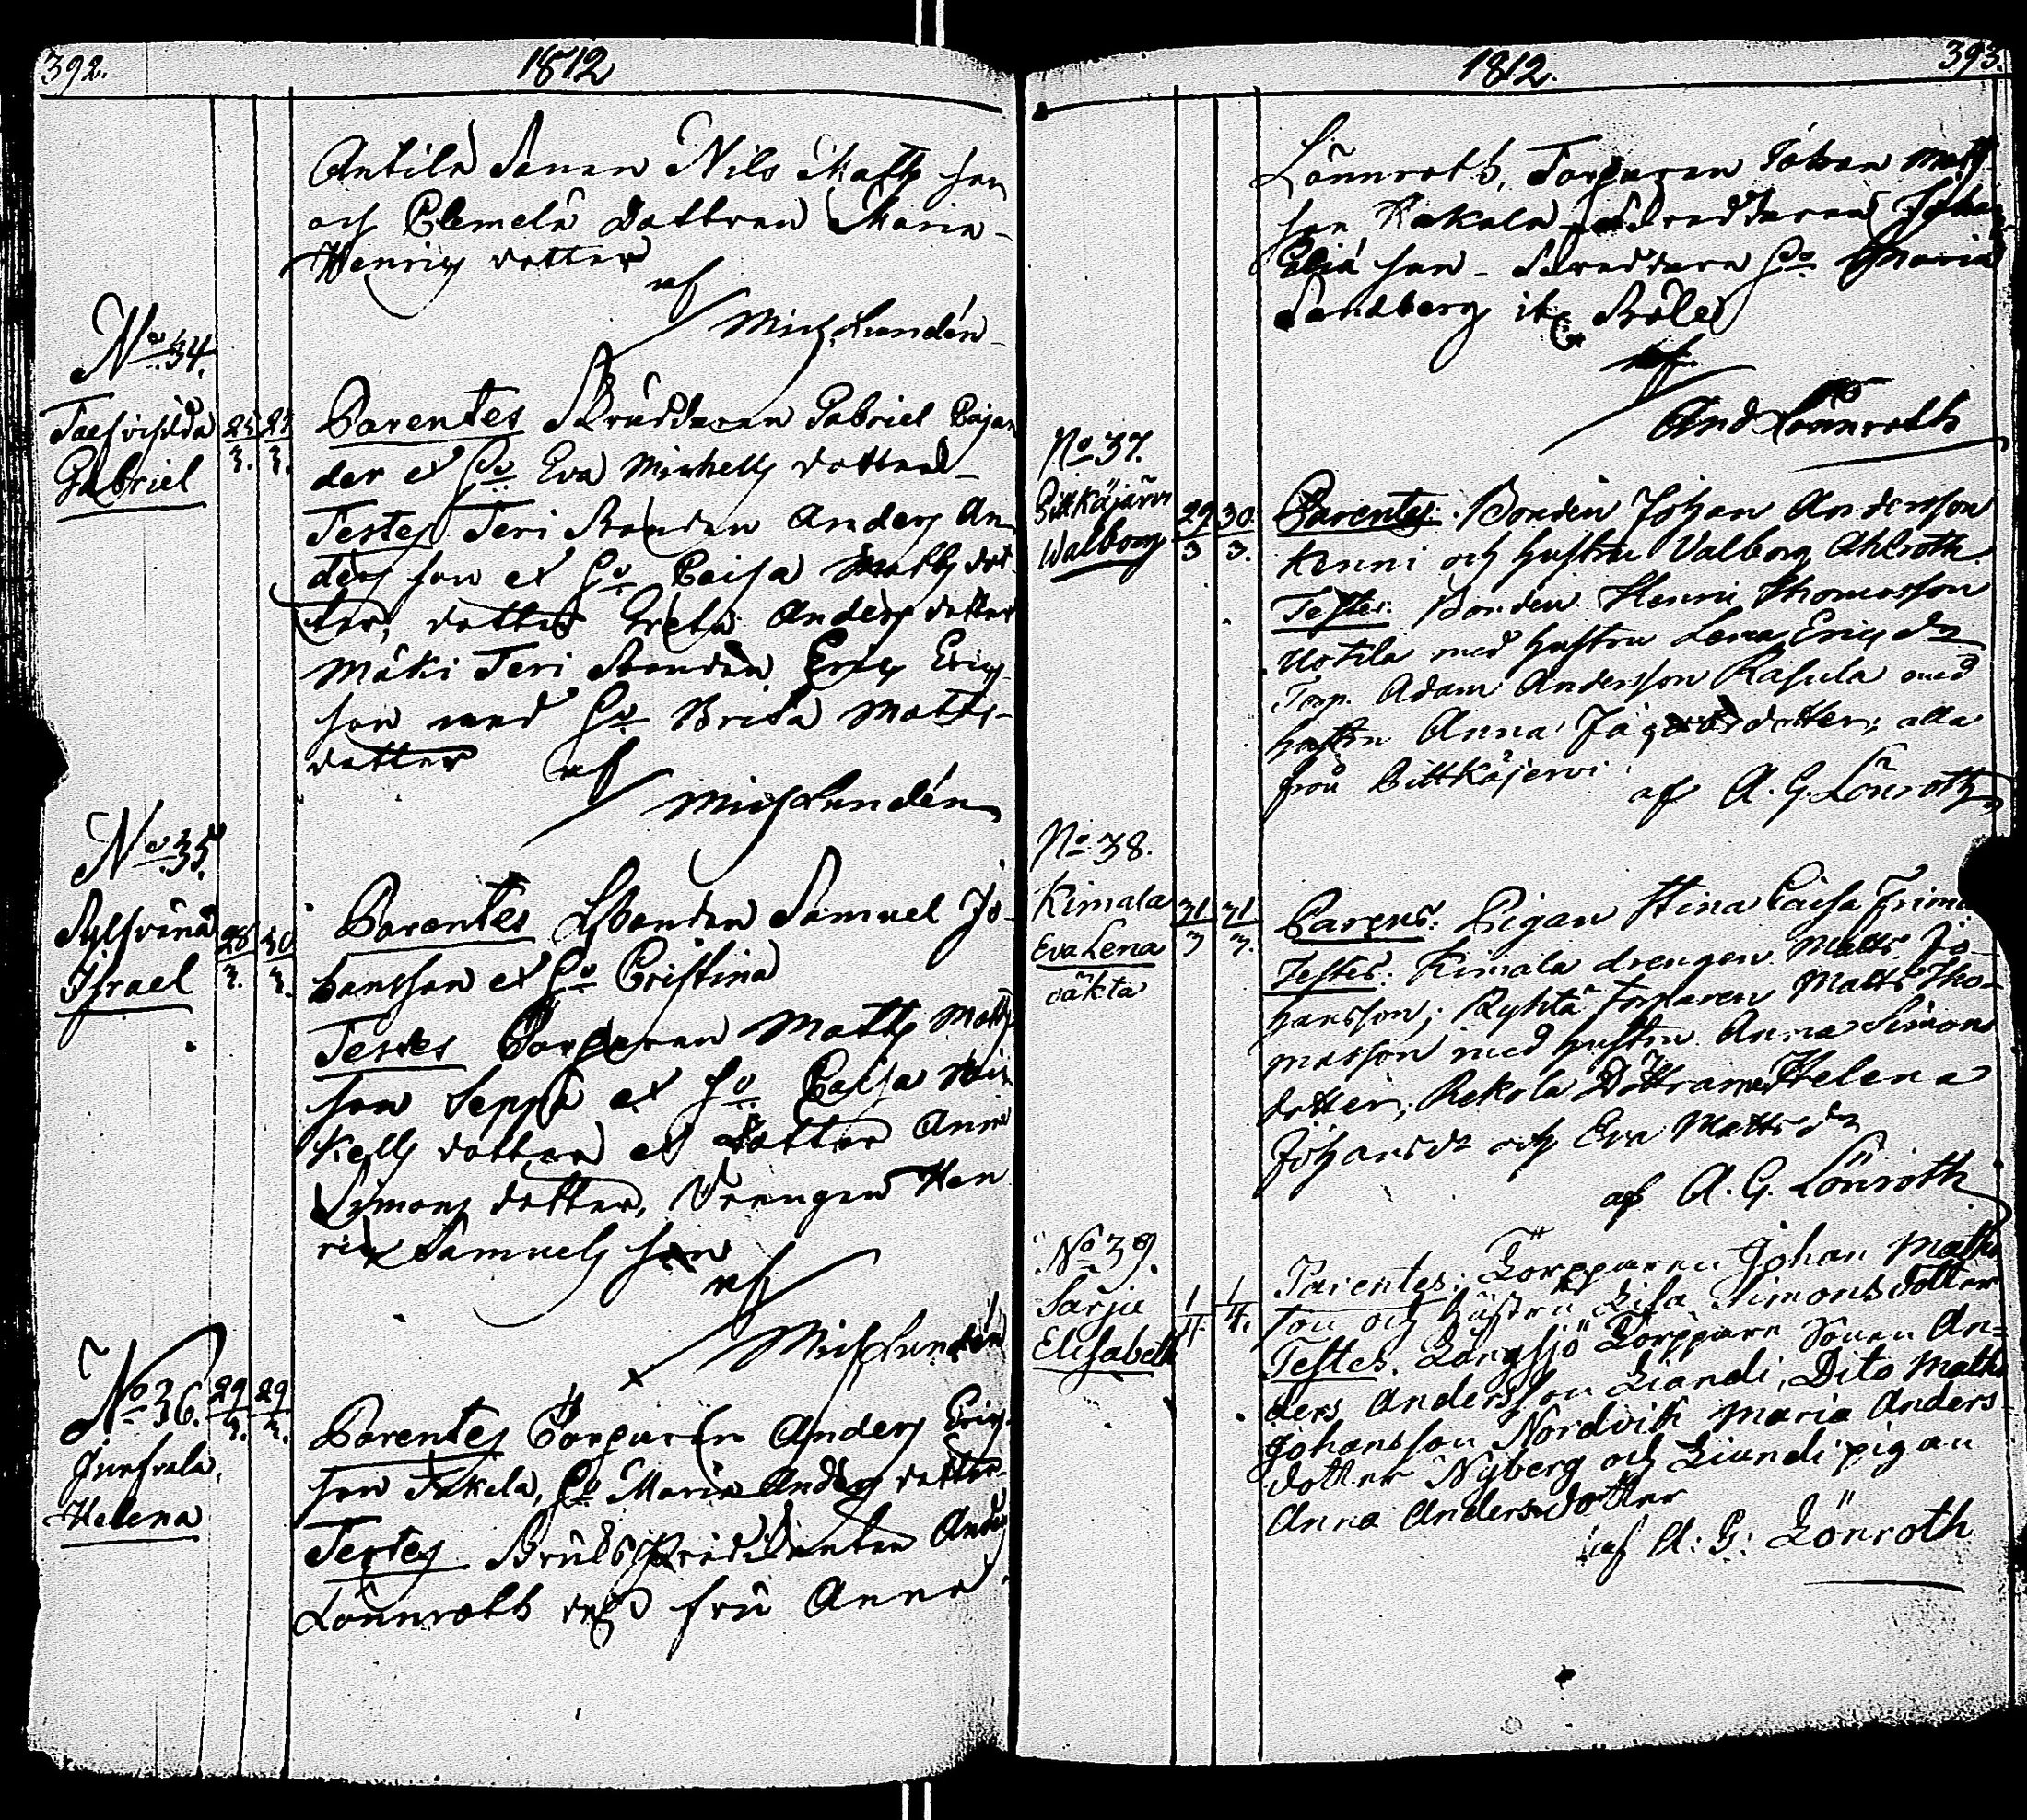 392.
1812
Antila Sonen Nils Matts son
och Clemelä Dottren Maria
Henrics dotter
af
Mich. Lundén
No. 34.
Gabriel
25/3. 27/3.
Parentes Skräddaren Gabriel Cajan
der et Ho. Eva Michells dotter
Testes Teri Bonden Anders An
ders son et Ho. Caisa Matts dot
ter, dotter Greta Anders dotter
Mäki Teri Bonden Eric Erics
son med Ho. Brita Matts
dotter af
Mich Lundén
No. 35.
Israel
28/3. 30/3.
Parentes Bonden Samuel Jo
hansson et Ho. Cristina
Testes Torparen Matts Matts
son Seppä et Ho. Caisa Mic
kells dotter et Dotter Anna
Simons dotter, Drengen Hen
ric Samuels son
af
Mich Lundén
No. 36.
29/3. 29/3.
Helena
Parentes Torparen Anders Erics
son Kakela, Ho. Maria Anders dotter
Testes Bruks Anders
Lönnroth dess fru Anna
393.
1812.
Lönnroth, Torparen Johan Matts
son Kakela Skreddaren Johan
Elia son Skreddare Ho. Maria
Sandberg
af
And Lönnroth
No. 37.
Pittkäjärvi
Walborg
29/3 30/3.
Parentes: Bonden Johan Andersson
Kenni och hustru Valborg Ahlroth.
Testes: Bonden Henric Thomasson
Uotila med hustru Lena Ericsdr
Torp. Adam Andersson Rasula med
hustru Anna dotter; alla
från Pittkäjervi
af A. G. Lönroth
No. 38.
Kimala
Eva Lena
oäkta
31/3 31/3.
Parens: Pigan Stina Caisa
Testes: Kimala drengen Matts Jo-
hansson; Ryhtä Torparen Matts Tho-
masson med hustru Anna Simons
dotter; Rekola Döttrarne Helena
Johansdr och Eva Mattsdr
af A. G. Lönroth
No 39.
Sarju
Elisabeth
1/4. 1/4.
Parentes: Torpparen Johan Matts
son och hustru Lisa Simonsdotter
Testes. Långsjö Torppare Sonen An=
ders Andersson Liandi, Dito Matts
Johansson Nordvik Maria Anders
dotter Nyberg och Liandi pigan
Anna Andersdotter
af A: G: Lönroth